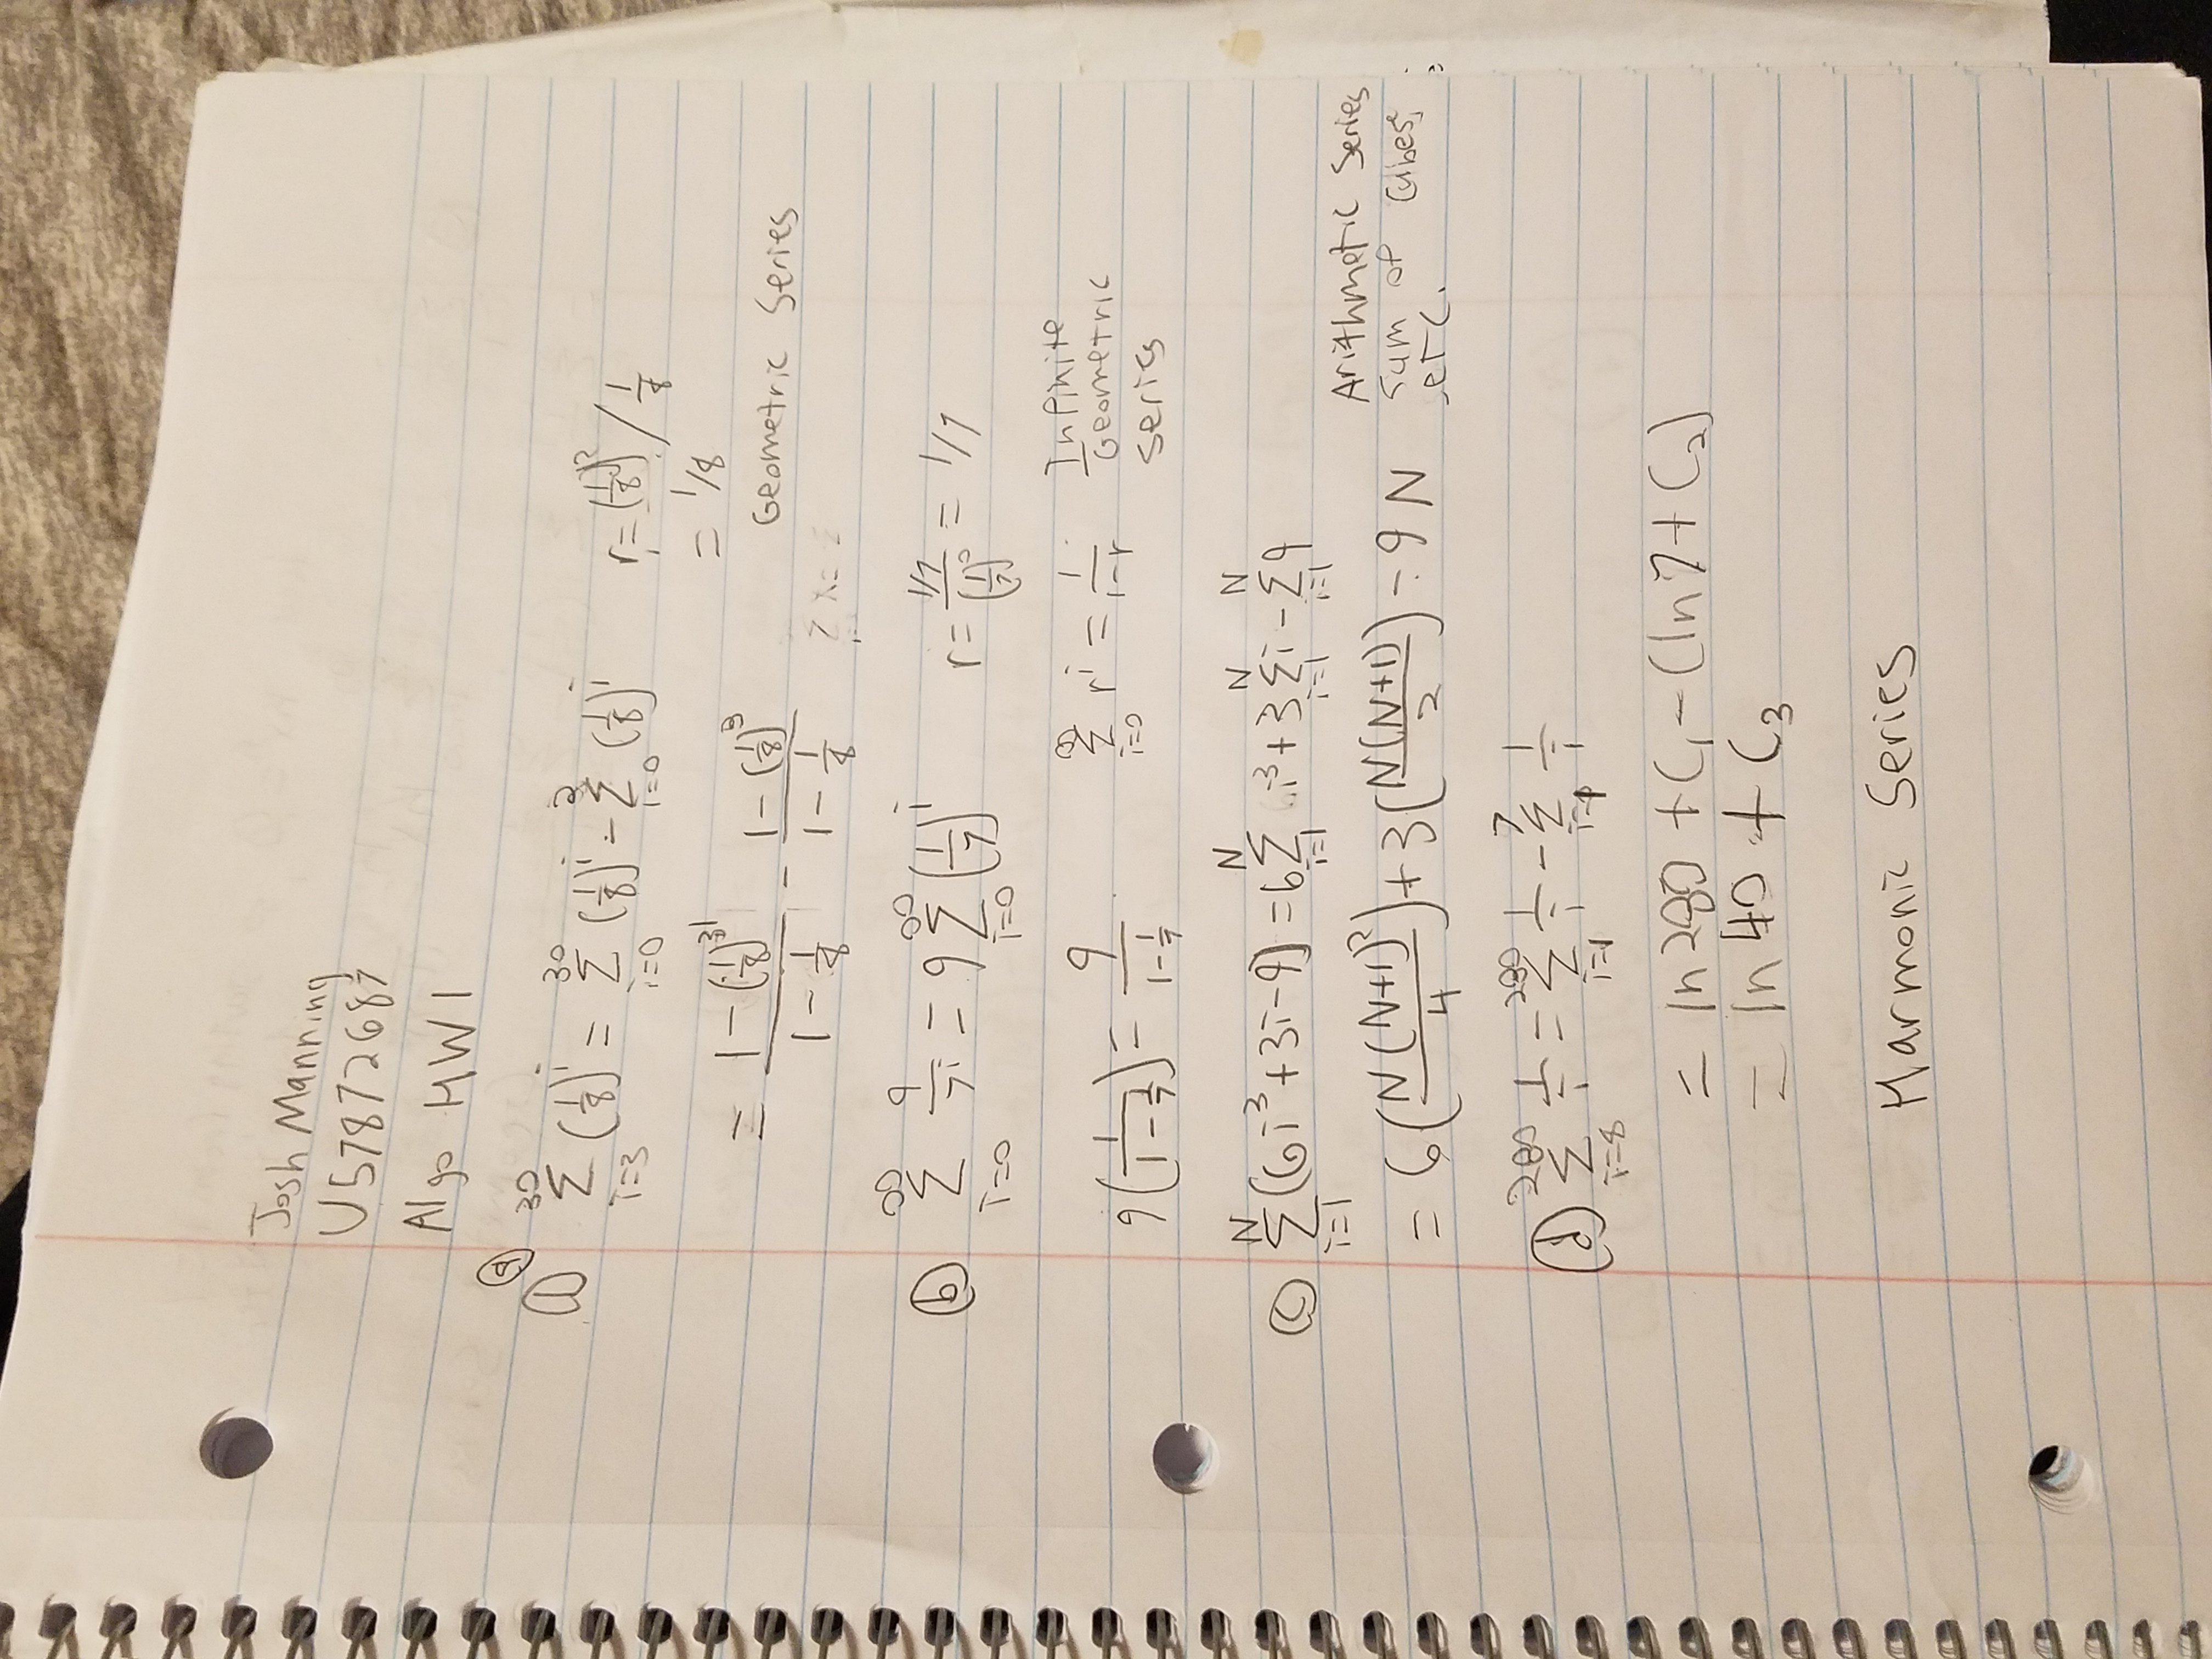 Josh Manning
U57872687
Algo HW1
① ⓐ ∑_{i=3}^{30} (1/8)^i = ∑_{i=0}^{30} (1/8)^i - ∑_{i=0}^{2} (1/8)^i   r = (1/8)^2 / 1/8
= 1/8
= (1-(1/8)^31)/(1-1/8) - (1-(1/8)^3)/(1-1/8)   Geometric Series
ⓑ ∑_{i=0}^{∞} 9/7^i = 9∑_{i=0}^{∞} (1/7)^i   r = (1/7)/(1/7)^0 = 1/7
9(1/(1-1/7)) = 9/(1-1/7)   ∑_{i=0}^{∞} r^i = 1/(1-r)   Infinite
Geometric
Series
ⓒ ∑_{i=1}^{N} (6i^3+3i-9) = 6∑_{i=1}^{N} i^3 + 3∑_{i=1}^{N} i - ∑_{i=1}^{N} 9
= 6(N(N+1)^2/4) + 3(N(N+1)/2) - 9N   Arithmetic Series
Sum of Cubes,
etc.
ⓓ ∑_{i=8}^{280} 1/i = ∑_{i=1}^{280} 1/i - ∑_{i=1}^{7} 1/i
= ln 280 + C_1 - (ln 7 + C_2)
= ln 40 + C_3
Harmonic Series